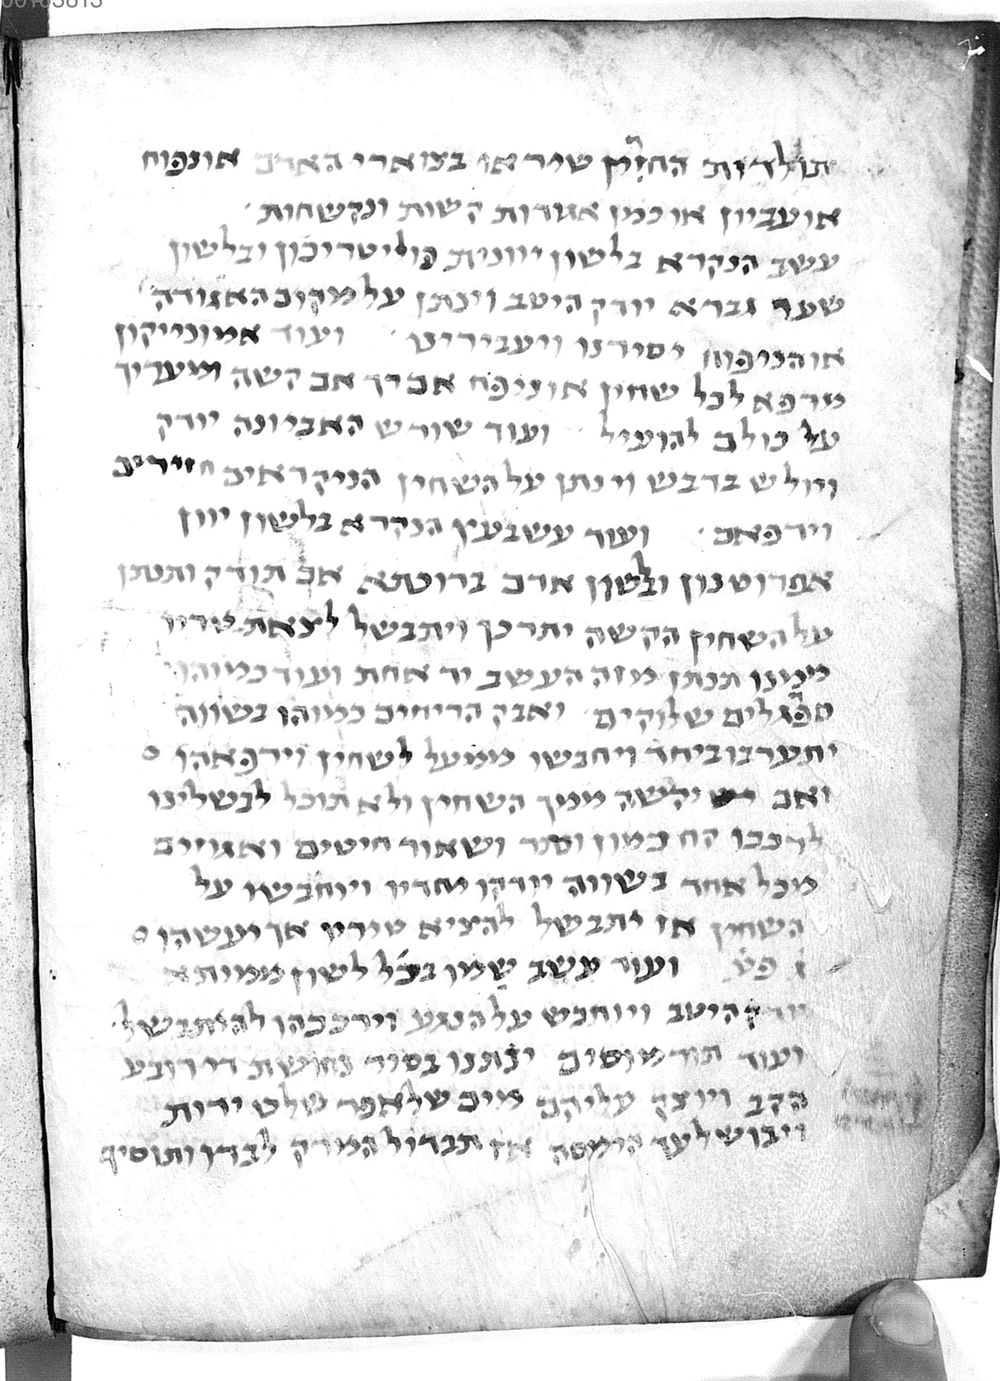 תולדות החזירין שיר או בצוארי האדם אונפוח
או עביון או כמן אגודות קשות ונקשחות
עשב הנקרא בלשון יוונית פוליטריכון ובלשון
שער גברא יודק היטב וינתן על מקום האגודה
או הניפוח יסירנו ויעבירינו ועוד אמונייקון
מרפא לכל שחין או ניפח אם רך אם קשה ומעריך
על כולם להועיל ועוד שורש האביונה יודק
ויולש בדבש וינתן על השחין הניקראים חזירים
וירפאם ועוד עשב עץ הנקרא בלשון יוון
אפרוטנון ובלשון ארם ברוטא אם תודק ותתנן
על השחין הקשה יתרכך ויתבשל לצאת טריו
ממינו תנתן מזה העשב יד אחת ועוד כמוהו
ספרגלים שלוקים ואבק הריחים כמוהו בשווה
יתערבו ביחד ויחבשו ממעל לשחין וירפאהו
ואם יקשה ממך השחין ולא תוכל לבשלינו
לרככו קח כמון וסנר ושאור חיטים ואגויים
מכל אחד בשווה יודקו יחדיו ויוחבשו על
השחין אז יתבשל להוציא טיריו אך יעשהו
ועוד עשב שמו בכל לשון ממיתא
יודק היטב ויוחבש על הנגע וירככהו להתבשל
ועוד תוד מוסים ינתנו בסיר נחושת די רובע
הקב ויוצק עליהם מים של אפר שלש ידות
ויבושל עד הימסה אז תבדול המרק לבדן ותוסיף